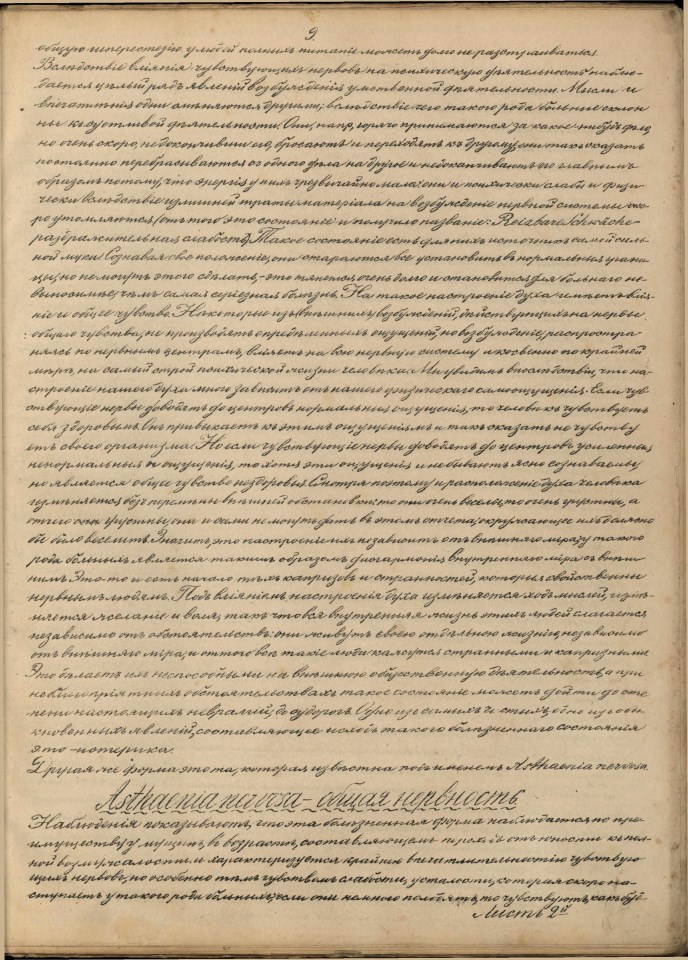 9.
общую гиперестезію у людей полныхъ питаніе можетъ долго не разстраиваться.
Вслѣдствіе вліянія чувствующихъ нервовъ на психическую дѣятельность наблю-
дается цѣлый рядъ явленій возбужденія умственной дѣятельности. Мысли и
впечатлѣнія одни смѣняются другими; вслѣдствіе чего такого рода больные склон-
ны къ суетливой дѣятельности. Они, напр., горячо принимаются за какое нибудь дѣло,
но очень скоро, не докончивши его, бросаютъ и переходятъ къ другому; они такъ сказать
постоянно перебрасываются съ одного дѣла на другое и не доканчиваютъ его главнымъ
образомъ потому, что энергія у нихъ чрезвычайно мала; они и психически слабы и физи-
чески вслѣдствіе излишней траты матеріала на возбужденіе нервной системы ско-
ро утомляются (отъ того это состояніе и получило названіе: Reizbare Schwäche -
раздражительная слабость). Такое состояніе есть для нихъ источникъ самой силь-
ной муки. Сознавая свое положеніе, они стараются все установить въ нормальныя грани-
цы, но не могутъ этого сдѣлать, - это тянется очень долго и становится для больнаго не-
выносимѣе, чѣмъ самая серіезная болѣзнь. На такое настроеніе духа имѣетъ влія-
ніе и общее чувство. Нѣкоторые изъ внѣшнихъ возбужденій, дѣйствующихъ на нервы
общаго чувства, не производятъ опредѣленныхъ ощущеній, но возбужденіе, распростра-
няясь по нервнымъ центрамъ, вліяетъ на всю нервную систему и косвенно по крайней
мѣрѣ, на самый строй психической жизни человѣка. Мы увидимъ впослѣдствіи, что на-
строеніе нашего духа много зависитъ отъ нашего физическаго самоощущенія. Если чув-
ствующіе нервы доводятъ до центровъ нормальныя ощущенія, то человѣкъ чувствуетъ
себя здоровымъ, онъ привыкаетъ къ этимъ ощущеніямъ и такъ сказать не чувству-
етъ своего организма. Но если чувствующіе нервы доводятъ до центровъ усиленныя
ненормальныя ощущенія, то хотя эти ощущенія и не бываютъ ясно сознаваемы,
но является общее чувство нездоровья. Смотря поэтому и расположеніе духа человѣка
измѣняется безъ перемѣны внѣшней обстановки: то они очень веселы, то очень грустны, а
отчего грустны, они и сами не могутъ дать въ этомъ отчета; окружающее ихъ должно
бы было веселить. Значитъ, это настроеніе ихъ не зависитъ отъ внѣшняго міра; у такого
рода больныхъ является такимъ образомъ дисгармонія внутренняго міра съ внѣш-
нимъ. Это-то и есть начало тѣхъ капризовъ и странностей, которыя свойственны
нервнымъ людямъ. Подъ вліяніемъ настроенія духа измѣняется ходъ мыслей, измѣ-
няется желаніе и воля, такъ что вся внутренняя жизнь этихъ людей слагается
независимо отъ обстоятельствъ: они живутъ своею отдѣльною жизнію, независимо
отъ внѣшняго міра, и оттого всѣ такіе люди кажутся странными и капризными.
Это дѣлаетъ ихъ неспособными на внѣшнюю общественную дѣятельность, а при
неблагопріятныхъ обстоятельствахъ такое состояніе можетъ дойти до сте-
пени настоящихъ невралгій, до судорогъ. Одно изъ самыхъ чистыхъ, одно изъ обы-
кновенныхъ явленій, составляющее исходъ такого болѣзненнаго состоянія
это - истерика.
Другая же форма это та, которая извѣстна подъ именемъ Asthaenia nervosa.
Asthaenia nervosa - общая нервность.
Наблюденія показываютъ, что эта болѣзненная форма наблюдается по пре-
имуществу у мущинъ, въ возрастѣ, составляющемъ переходъ отъ юности къ пол-
ной возмужалости, и характеризуется крайнею впечатлительностію чувствую-
щихъ нервовъ, но особенно тѣмъ чувствомъ слабости, усталости, которая скоро на-
ступаетъ у такого рода больныхъ; если они немного походятъ, то чувствуютъ, какъ буд-
Листъ 2й